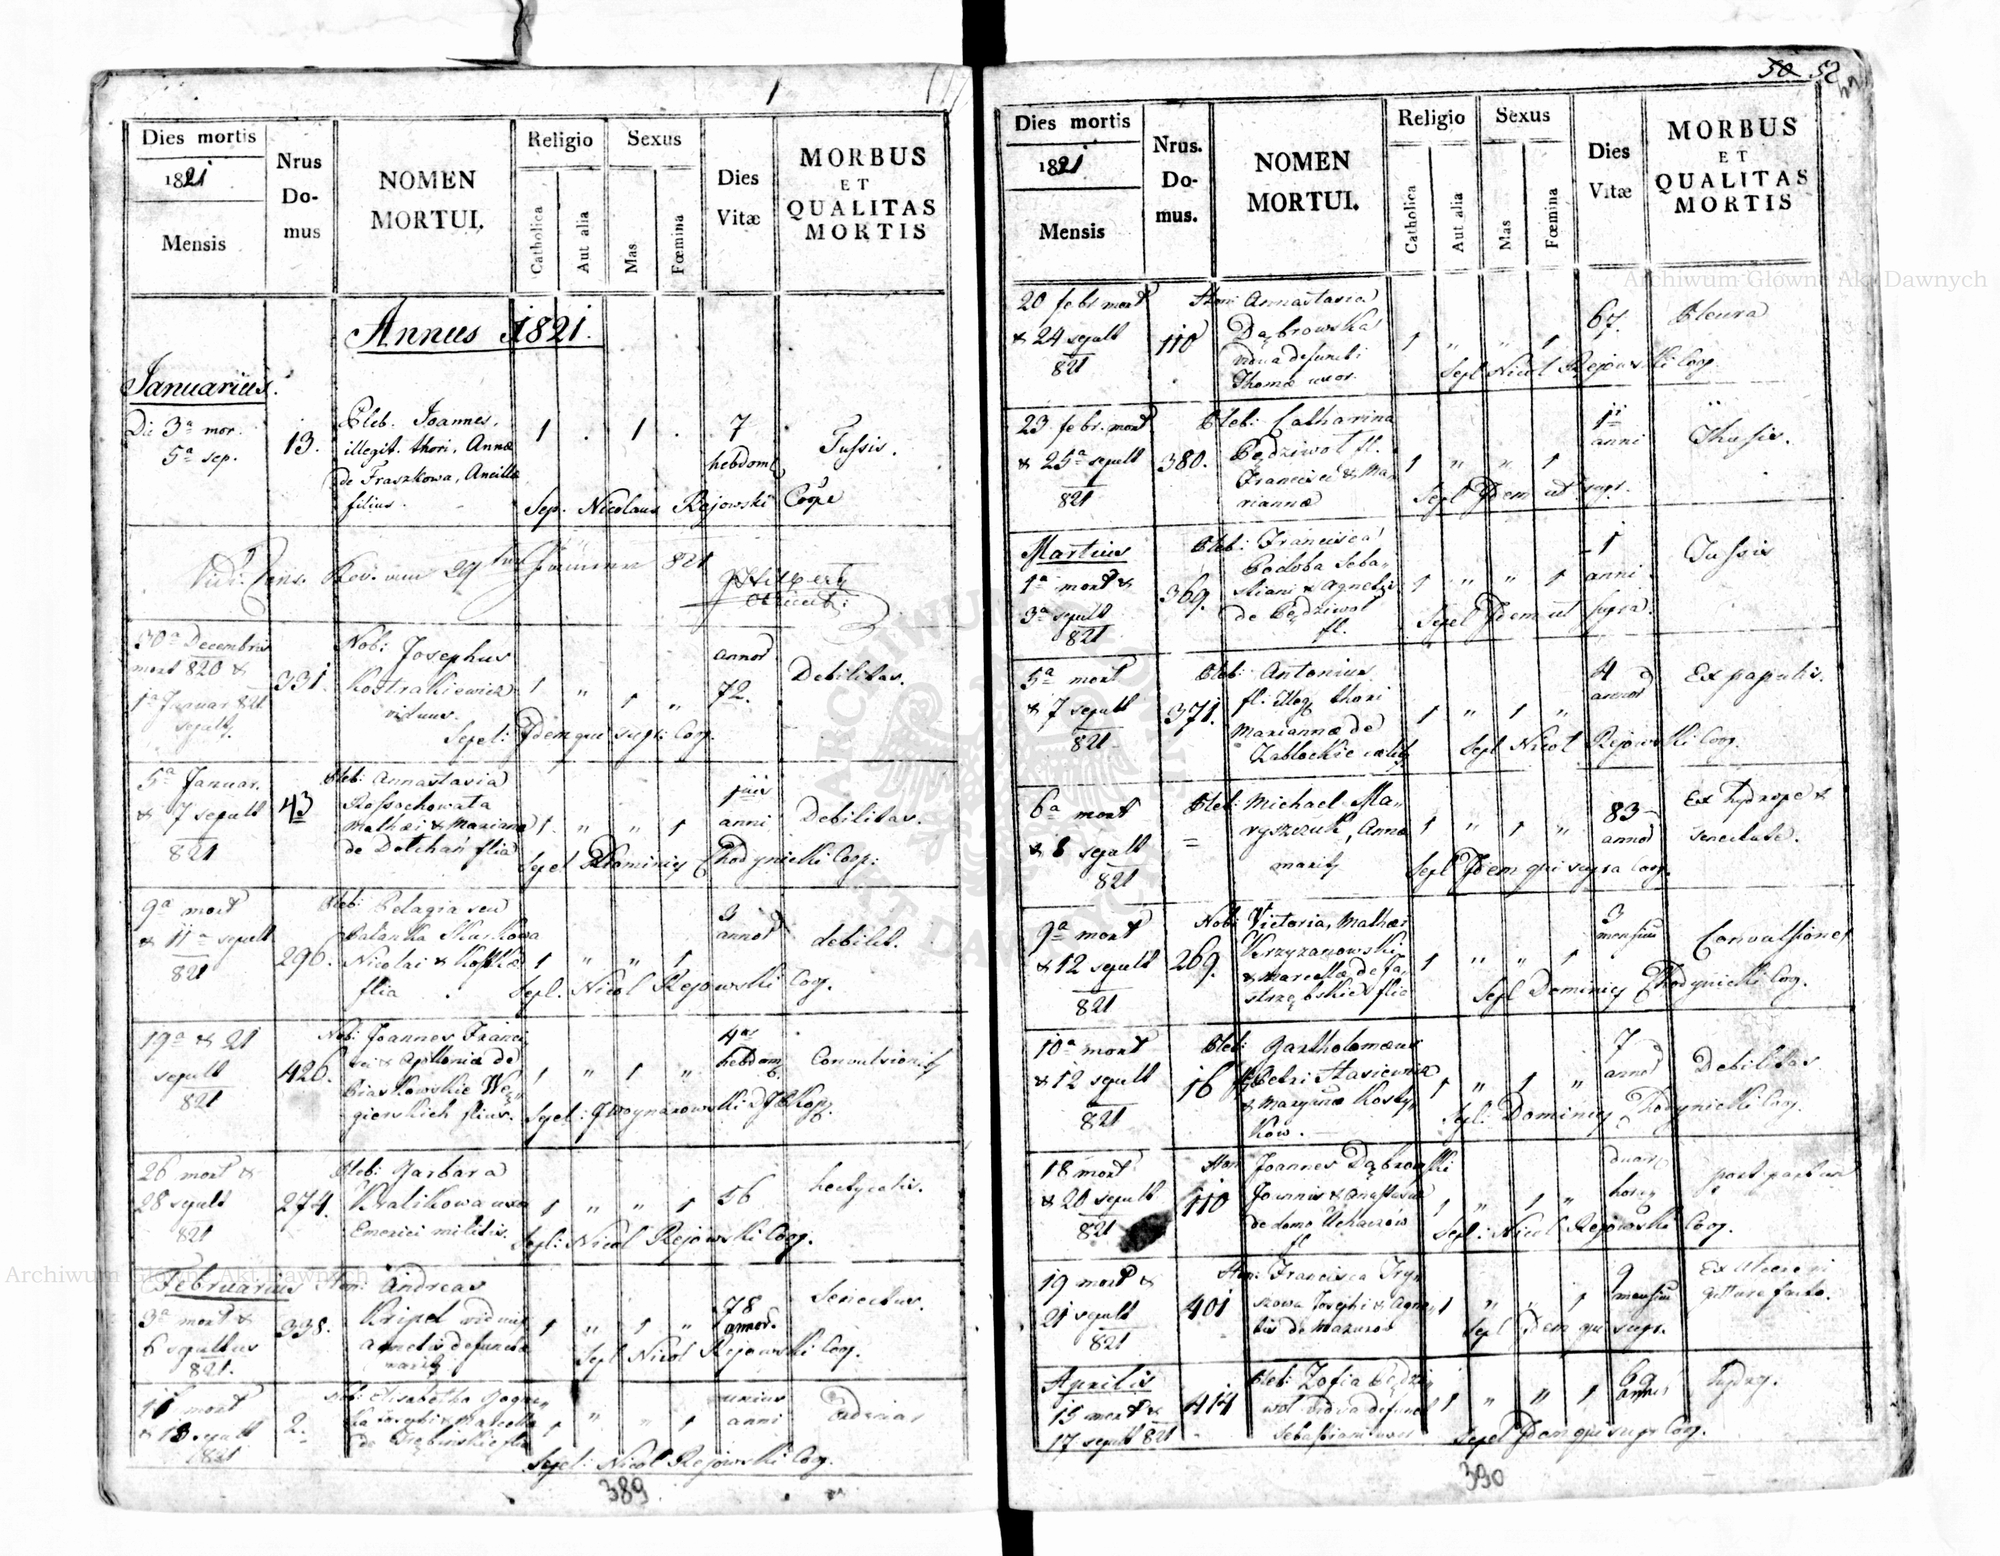 1
Dies mortis
1821
Mensis
Nrus
Do-
mus
NOMEN
MORTUI.
Religio
Catholica
Aut alia
Sexus
Mas
Fœmina
Dies
Vitæ
MORBUS
ET
QUALITAS
MORTIS
Annus 1821.
Januarius.
Die 3ª mor.
5ª sep.
13.
Pleb. Joannes,
illegit. thori, Annæ
de Fraszkowa, Ancillæ
filius.
1 . 1 .
7
hebdom
Tussis.
Sep. Nicolaus Rejowski Coope
821
30ª Decembris
mort 820 &
1ª Januar 821
sepult.
331.
Nob: Josephus
Kostrakiewicz
viduus.
1 " 1 "
annor
72.
Debilitas.
Sepel: Idem qui supr: Coop.
5ª Januar.
& 7 sepult
821
43
Pleb: Annastasia
Rossochowata
Mathæi & Marianna
de Dolchań filia
1. " " 1
anni
Debilitas.
Sepel Dominicy Chodynicki Coop:
9ª mort
& 11ª sepult
821
296.
Pleb: Pelagia seu
Nicolai &
filia
1 " " 1
3
annor
debilit.
Sepl. Nicol Rejowski Coop.
19ª & 21
sepult
821
426.
Nob: Joannes Franci
sci & Apollonia de
Piaskowskie Wę
gierskich filius.
1 " 1 "
4
hebdom
Convulsionis
Sepel:
26 mort &
28 sepult
821
274.
Pleb: Barbara
Kralikowa uxor
Emerici militis.
1 " " 1
56
hectycatis.
Sepl: Nicol Rejowski Coop.
Februarius
3ª mort &
6 sepultus
821.
338.
Hon: Andreas
Kripel viduus
Agnetis defunctæ
1 " 1 "
78
annor.
Senectus.
Sepl Nicol Rejowski Coop.
11 mort
& 13 sepult
821
2.
Nob: Elisabetha
Josephi & Marcella
de
1 " " 1
unius
anni
Sepel: Nicol Rejowski Coop.
389
50 52
Dies mortis
1821
Mensis
Nrus.
Do-
mus.
NOMEN
MORTUI.
Religio
Catholica
Aut alia
Sexus
Mas
Fœmina
Dies
Vitæ
MORBUS
ET
QUALITAS
MORTIS
20 febr mort
& 24 sepult
821
110
Hon: Annastasia
Dąbrowska
vidua defuncti
Thomæ uxor.
1 " " 1
67.
Pleura
Sepl Nicol Rejowski Coop.
23 febr. mort
& 25ª sepult
821
380.
Pleb: Catharina
Pędziwol fl.
Francisci & Ma
riannæ
1 " " 1
anni
Sepl Idem ut supr.
Martius
1ª mort &
3ª sepult
821
369.
Pleb: Francisca
Podoba Seba-
stiani & Agnetis
de Pędziwol
fl.
1 " " 1
1
anni
Tussis
Sepel Idem ut supra.
5ª mort
& 7 sepult
821
371.
Pleb: Antonius
fl. Illeg thori
Mariannæ de
Zabłockie
1 " 1 "
4
annor
Ex papulis.
Sepl Nicol Rejowski Coop.
6ª mort
& 8 sepult
821
=
Pleb: Michael Ma
ryszczuk, Annæ
marity
1 " 1 "
83
annor
Ex hydrope &
senectute.
Sepl Idem qui supra Coop.
9ª mort
& 12 sepult
821
269.
Nob: Victoria, Mathæi
Krzyżanowski
& Marcella de Ja
strzębskie filia
1 " " 1
3
mensium
Convulsiones
Sepl Dominicy Chodynicki Coop.
10ª mort
& 12 sepult
821
16
Pleb: Bartholomæus
Petri Stasiewicz
& Maryanna Kosty
ków.
1 " 1 "
7
annor
Debilitas
Sepl: Dominicy Chodynicki Coop.
18 mort
& 20 sepult
821
110
Hon Joannes Dąbrowski
Joannis & Anastasia
de domo
fl
1 " 1 "
duar
horar
post partum
Sepl: Nicol Rejowski Coop.
19 mort &
21 sepult
821
401
Hon: Francisca Try
szowa Josephi & Agne
tis de Mazurów
1 " " 1
9
mensium
Ex ulcere in
gutture facto.
Sepl Idem qui supr.
Aprilis
15 mort &
17 sepult 821
414
Pleb: Zofia Pędzi
wol vidua defuncti
Sebastiani uxor
1 " " 1
69
annor
hydrop.
Sepel Idem qui supr Coop.
390
ARCHIWUM GŁÓWNE AKT DAWNYCH
Archiwum Główne Akt Dawnych
Archiwum Główne Akt Dawnych